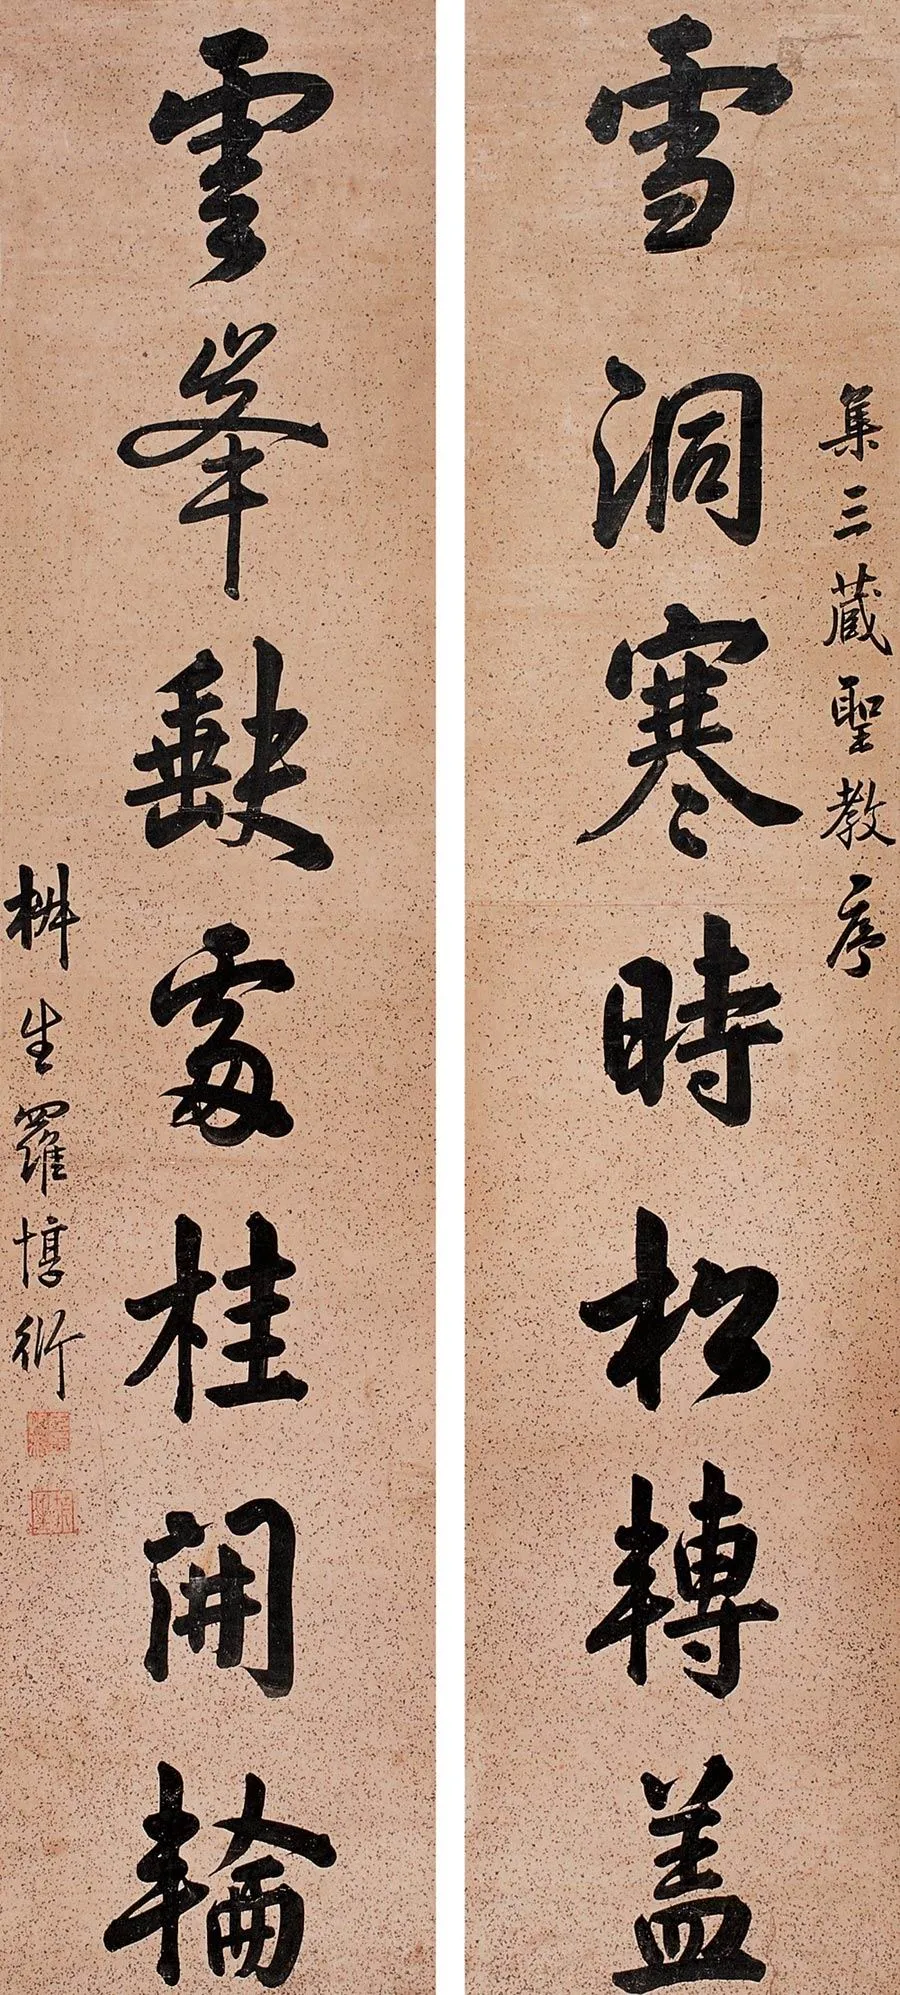 集三藏聖教序
雪洞寒時松轉蓋
雲峯缺處桂開輪
椒生羅惇衍